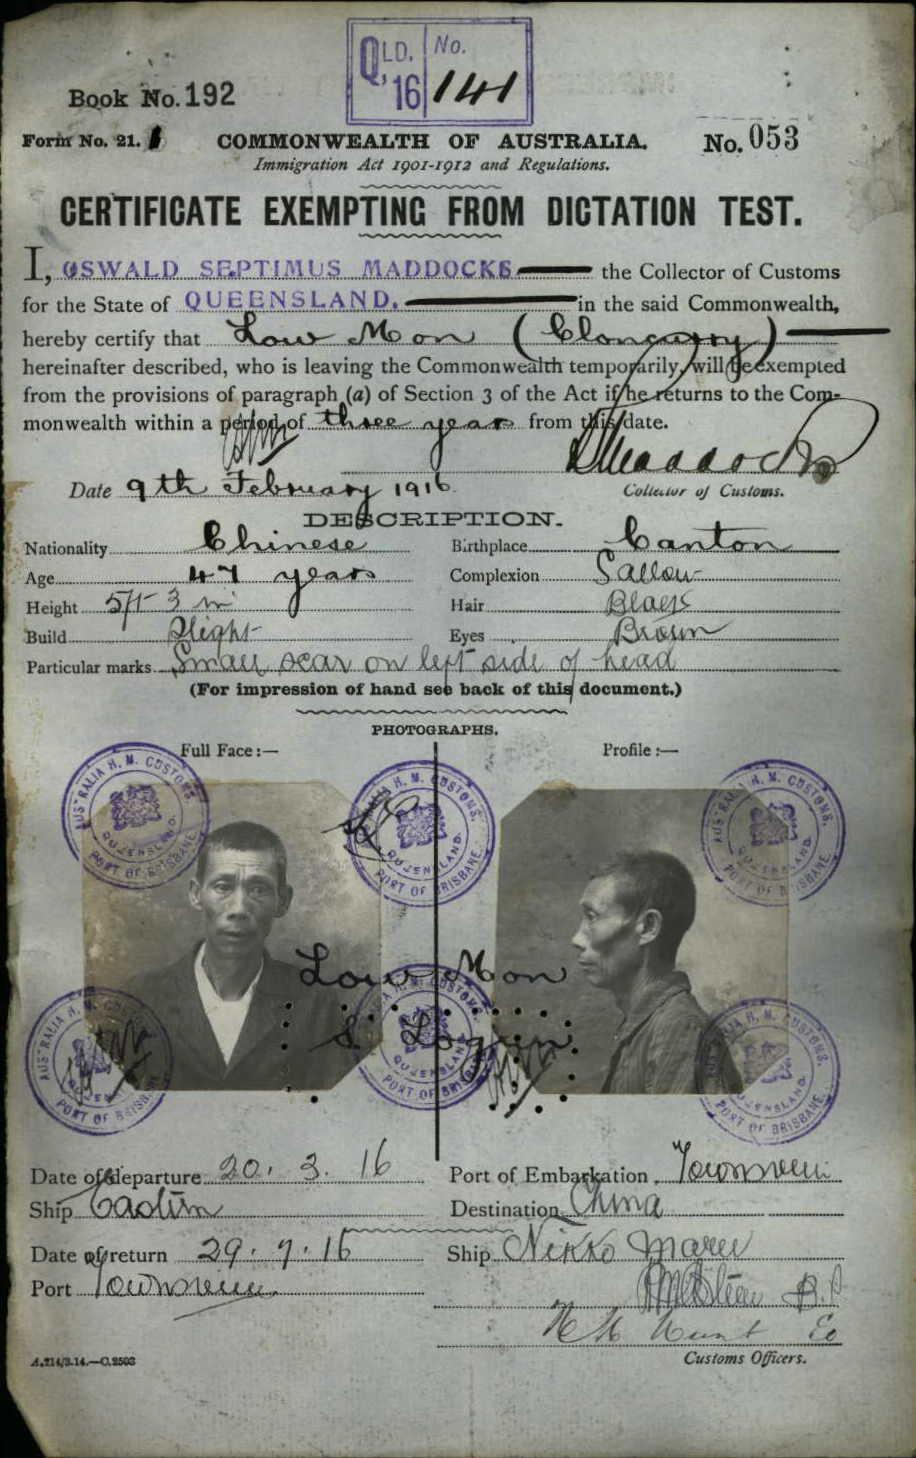 QLD. 16 No. 141
Book No. 192
Form No. 21. COMMONWEALTH OF AUSTRALIA. No. 053
Immigration Act 1901-1912 and Regulations.
CERTIFICATE EXEMPTING FROM DICTATION TEST.
I, OSWALD SEPTIMUS MADDOCKS the Collector of Customs
for the State of QUEENSLAND. in the said Commonwealth,
hereby certify that Low Mon (Cloncurry)
hereinafter described, who is leaving the Commonwealth temporarily, will be exempted
from the provisions of paragraph (a) of Section 3 of the Act if he returns to the Com-
monwealth within a period of three years from this date.
Date 9th February 1916 Collector of Customs.
DESCRIPTION.
Nationality Chinese Birthplace Canton
Age 47 years Complexion Sallow
Height 5ft 3 in Hair Black
Build Slight Eyes Brown
Particular marks Small scar on left side of head
(For impression of hand see back of this document.)
PHOTOGRAPHS.
Full Face:— Profile:—
AUSTRALIA H. M. CUSTOMS. QUEENSLAND. PORT OF BRISBANE
AUSTRALIA H. M. CUSTOMS. QUEENSLAND. PORT OF BRISBANE
AUSTRALIA H. M. CUSTOMS. QUEENSLAND. PORT OF BRISBANE
Low Mon
AUSTRALIA H. M. CUSTOMS. QUEENSLAND. PORT OF BRISBANE
AUSTRALIA H. M. CUSTOMS. QUEENSLAND. PORT OF BRISBANE
AUSTRALIA H. M. CUSTOMS. QUEENSLAND. PORT OF BRISBANE
Date of departure 20. 3. 16 Port of Embarkation Townsville
Ship Destination China
Date of return 29. 7. 16 Ship Nikko Maru
Port Townsville
Hunt
A.214/3.14.—C.2503 Customs Officers.